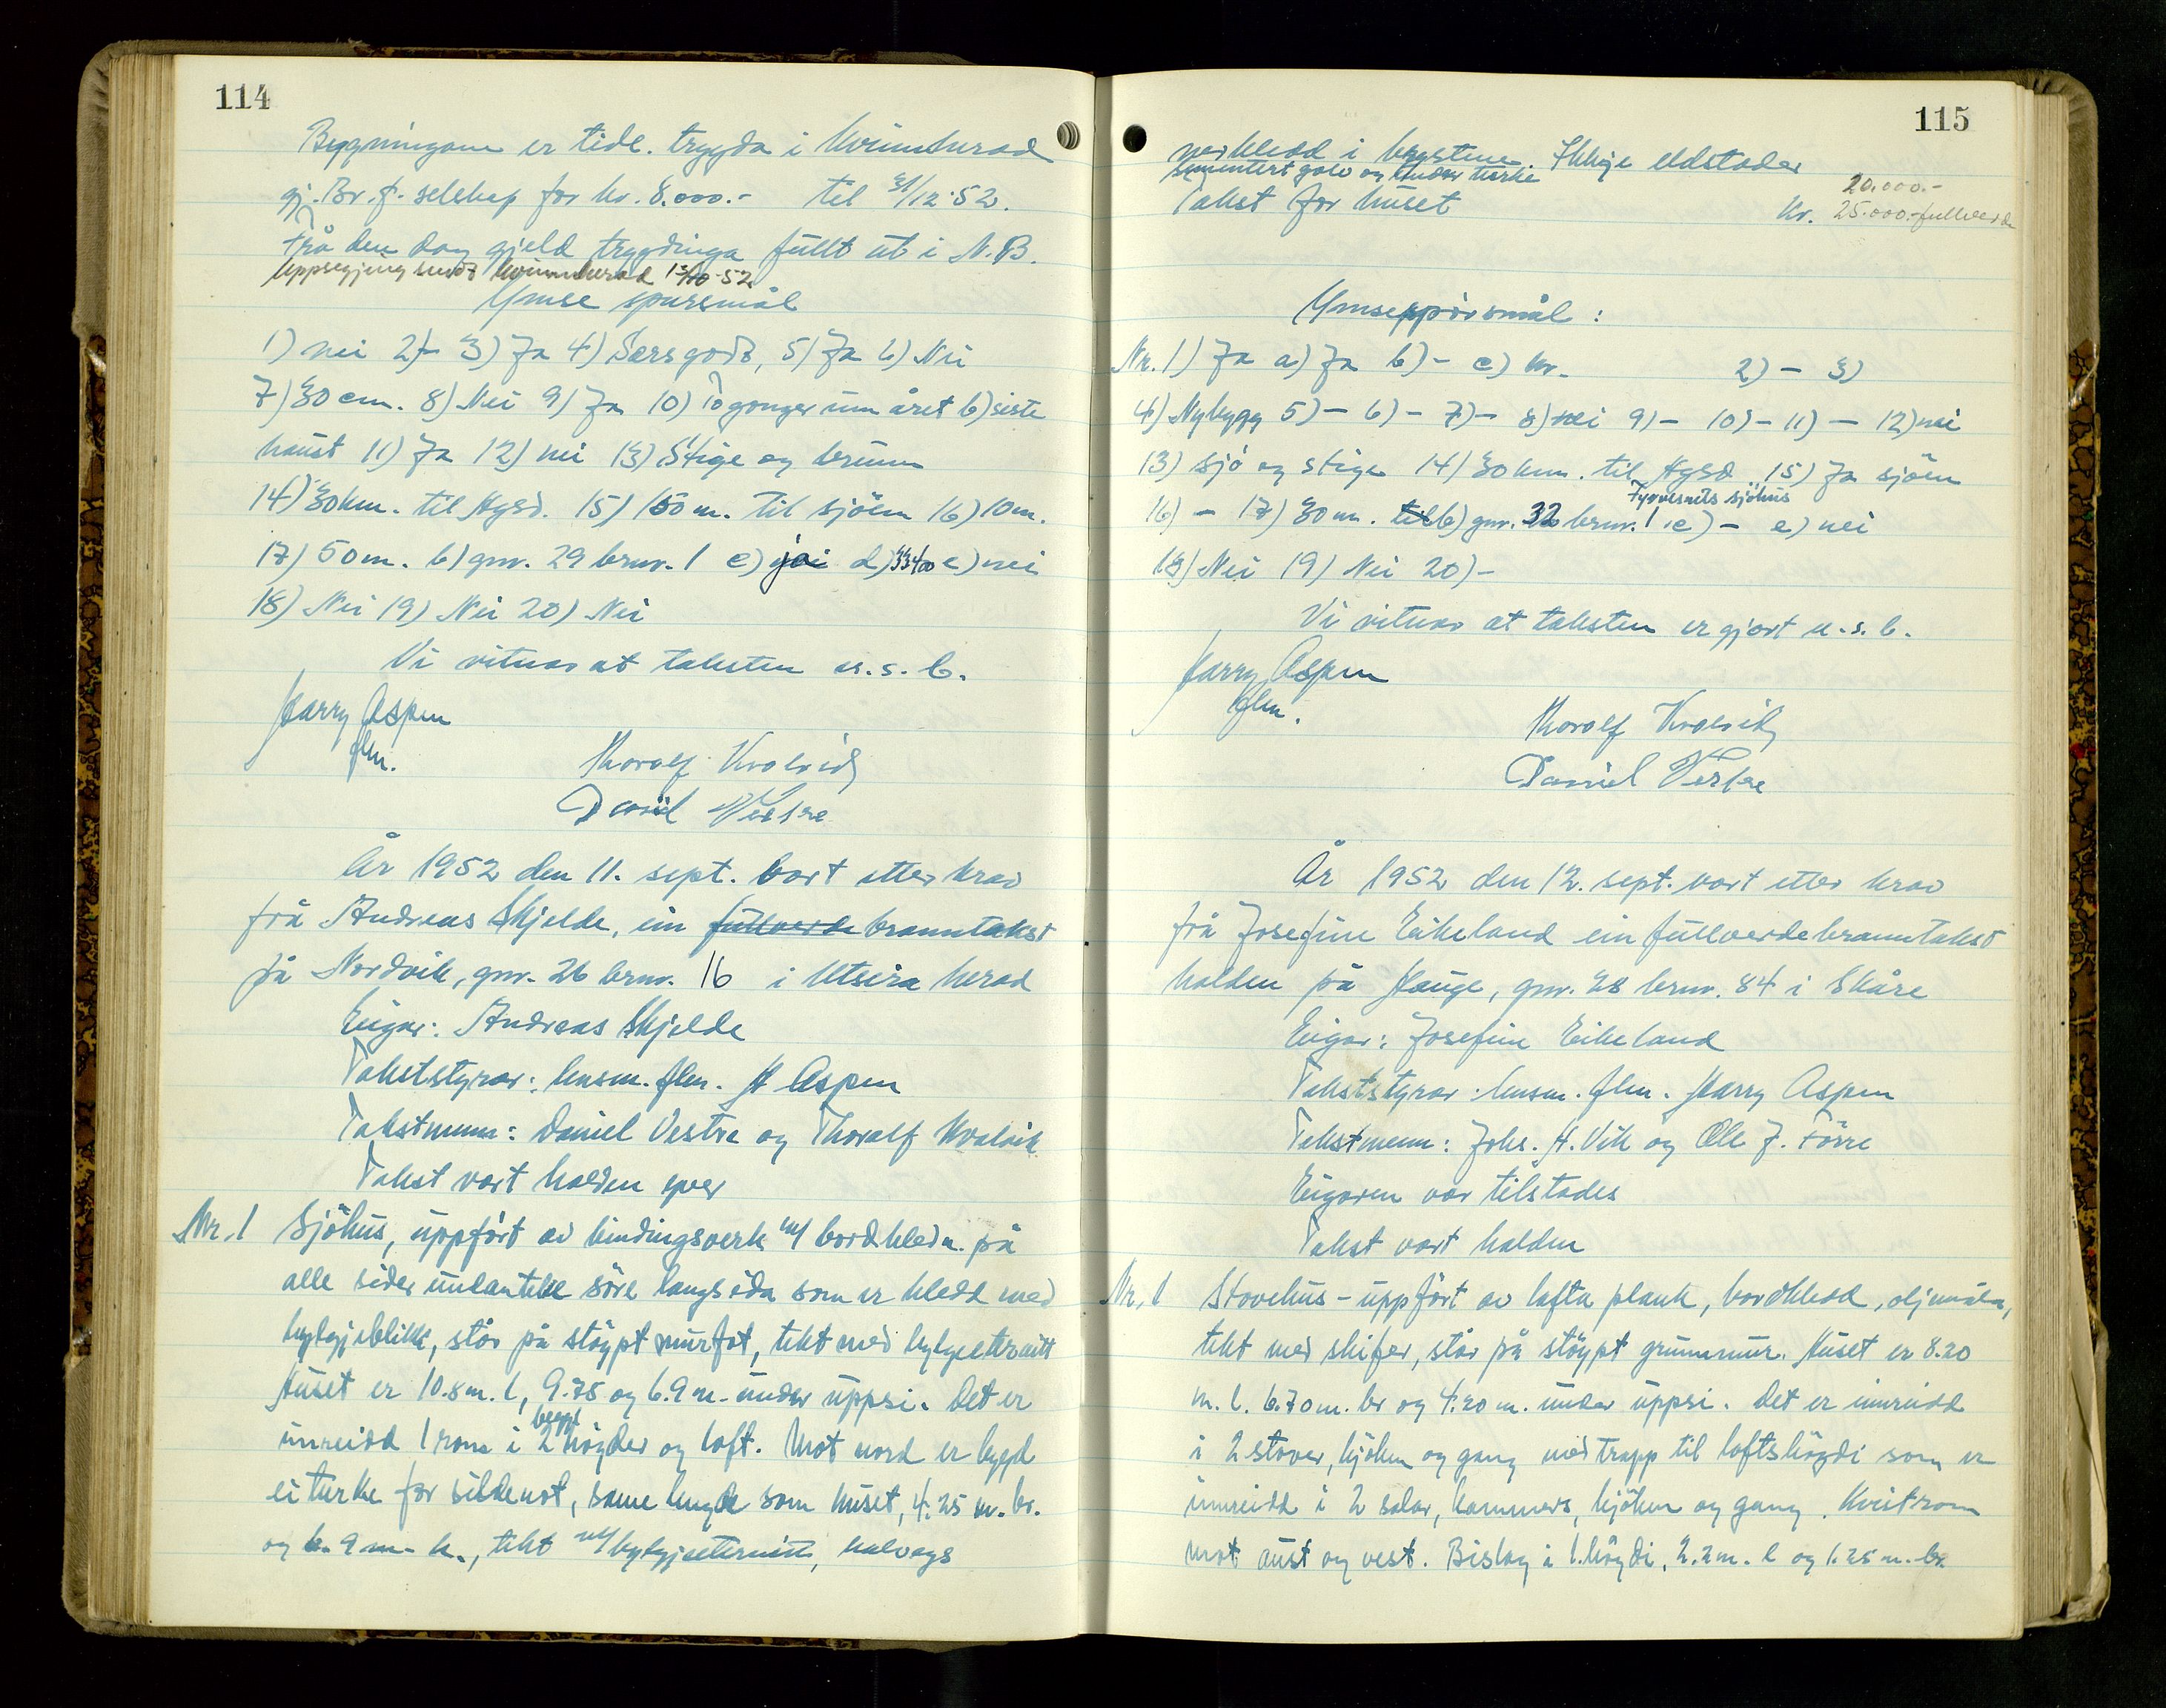 114
Bygningane er tidl. trygda i Kvinnherad
gj. Br. f. selskap for kr. 8.000.- til 31/12-52.
Frå den dag gjeld trygdinga fullt ut i N.B.
Uppsegjing sendt Kvinnherad 13/10-52
Ymse spursmål
1) nei 2)- 3) Ja 4) Særs godt, 5) Ja 6) Nei
7) 30 cm. 8) Nei 9) Ja 10) To gonger um året b) siste
haust 11) Ja 12) nei 13) Stige og brunn
14) 30 km. til Hgsd. 15) 150 m. til sjöen 16) 10 m.
17) 50 m. b) gnr. 29 brnr. 1 c) ja d) 33400 e) nei
18) Nei 19) Nei 20) Nei
Vi vitnar at taksten o.s.b.
Harry Aspen
flm.
Thoralf Kvalvik
Daniel Vestre
År 1952 den 11. sept. vart etter krav
frå Andreas Skjelde, ein fullverde branntakst
på Nordvik, gnr. 26 brnr. 16 i Utsira herad
Eigar: Andreas Skjelde
Takststyrar: lensm. flm. H Aspen
Takstmenn: Daniel Vestre og Thoralf Kvalvik
Takst vart halden yver
Nr. 1 Sjöhus, uppfört av bindingsverk m/ bordkledn. på
alle sider undanteke söre langsida som er kledd med
bylgjeblikk, står på stöypt murfot, tekt med bylgjeeternitt
Huset er 10.8 m. l, 9.75 og 6.9 m. under uppsi. Det er
bygt
innreidd 1 rom i 2 högder og loft. Mot nord er bygd
ei turke for sildenot, same lengde som huset, 4.25 m. br.
og 6.9 m. h., tekt m/ bylgjeeternitt, halvegs
115
nerkledd i brystene. Ikkje eldstader
sementert golv og under turke
20.000.-
Takst for huset kr. 25.000.- fullverde
Ymse spörsmål:
Nr. 1) Ja a) Ja b)- c) kr. 2)- 3)
4) Nybygg 5)- 6)- 7)- 8) nei 9)- 10)- 11)- 12) nei
13) sjö og stige 14) 30 km. til Hgsd. 15) Ja sjöen
Tyvesnets sjöhus
16)- 17) 30 m. til b) gnr. 32 brnr. 1. c)- e) nei
18) Nei 19) Nei 20)-
Vi vitnar at taksten er gjort u.s.b.
Harry Aspen
flm.
Thoralf Kvalvik
Daniel Vestre
År 1952 den 12. sept. vart etter krav
frå Josefine Eikeland ein fullverdebranntakst
halden på Hauge, gnr. 28 brnr. 84 i Skåre
Eigar: Josefine Eikeland
Takststyrar: lensm. flm. Harry Aspen
Takstmenn: Johs. H. Vik og Ole J. Förre
Eigaren var tilstades
Takst vart halden
Nr. 1 Stovehus - uppfört av lafta plank, bordkledd, oljemåla,
tekt med skifer, står på stöypt grunnmur. Huset er 8.20
m. l. 6.70 m. br og 4.20 m. under uppsi. Det er innreidd
i 2 stover, kjöken og gang med trapp til loftshögdi som er
innreidd i 2 salar, kammers, kjöken og gang. Kvistrom
mot aust og vest. Bislag i 1. högdi, 2.2 m. l og 1.25 m. br.